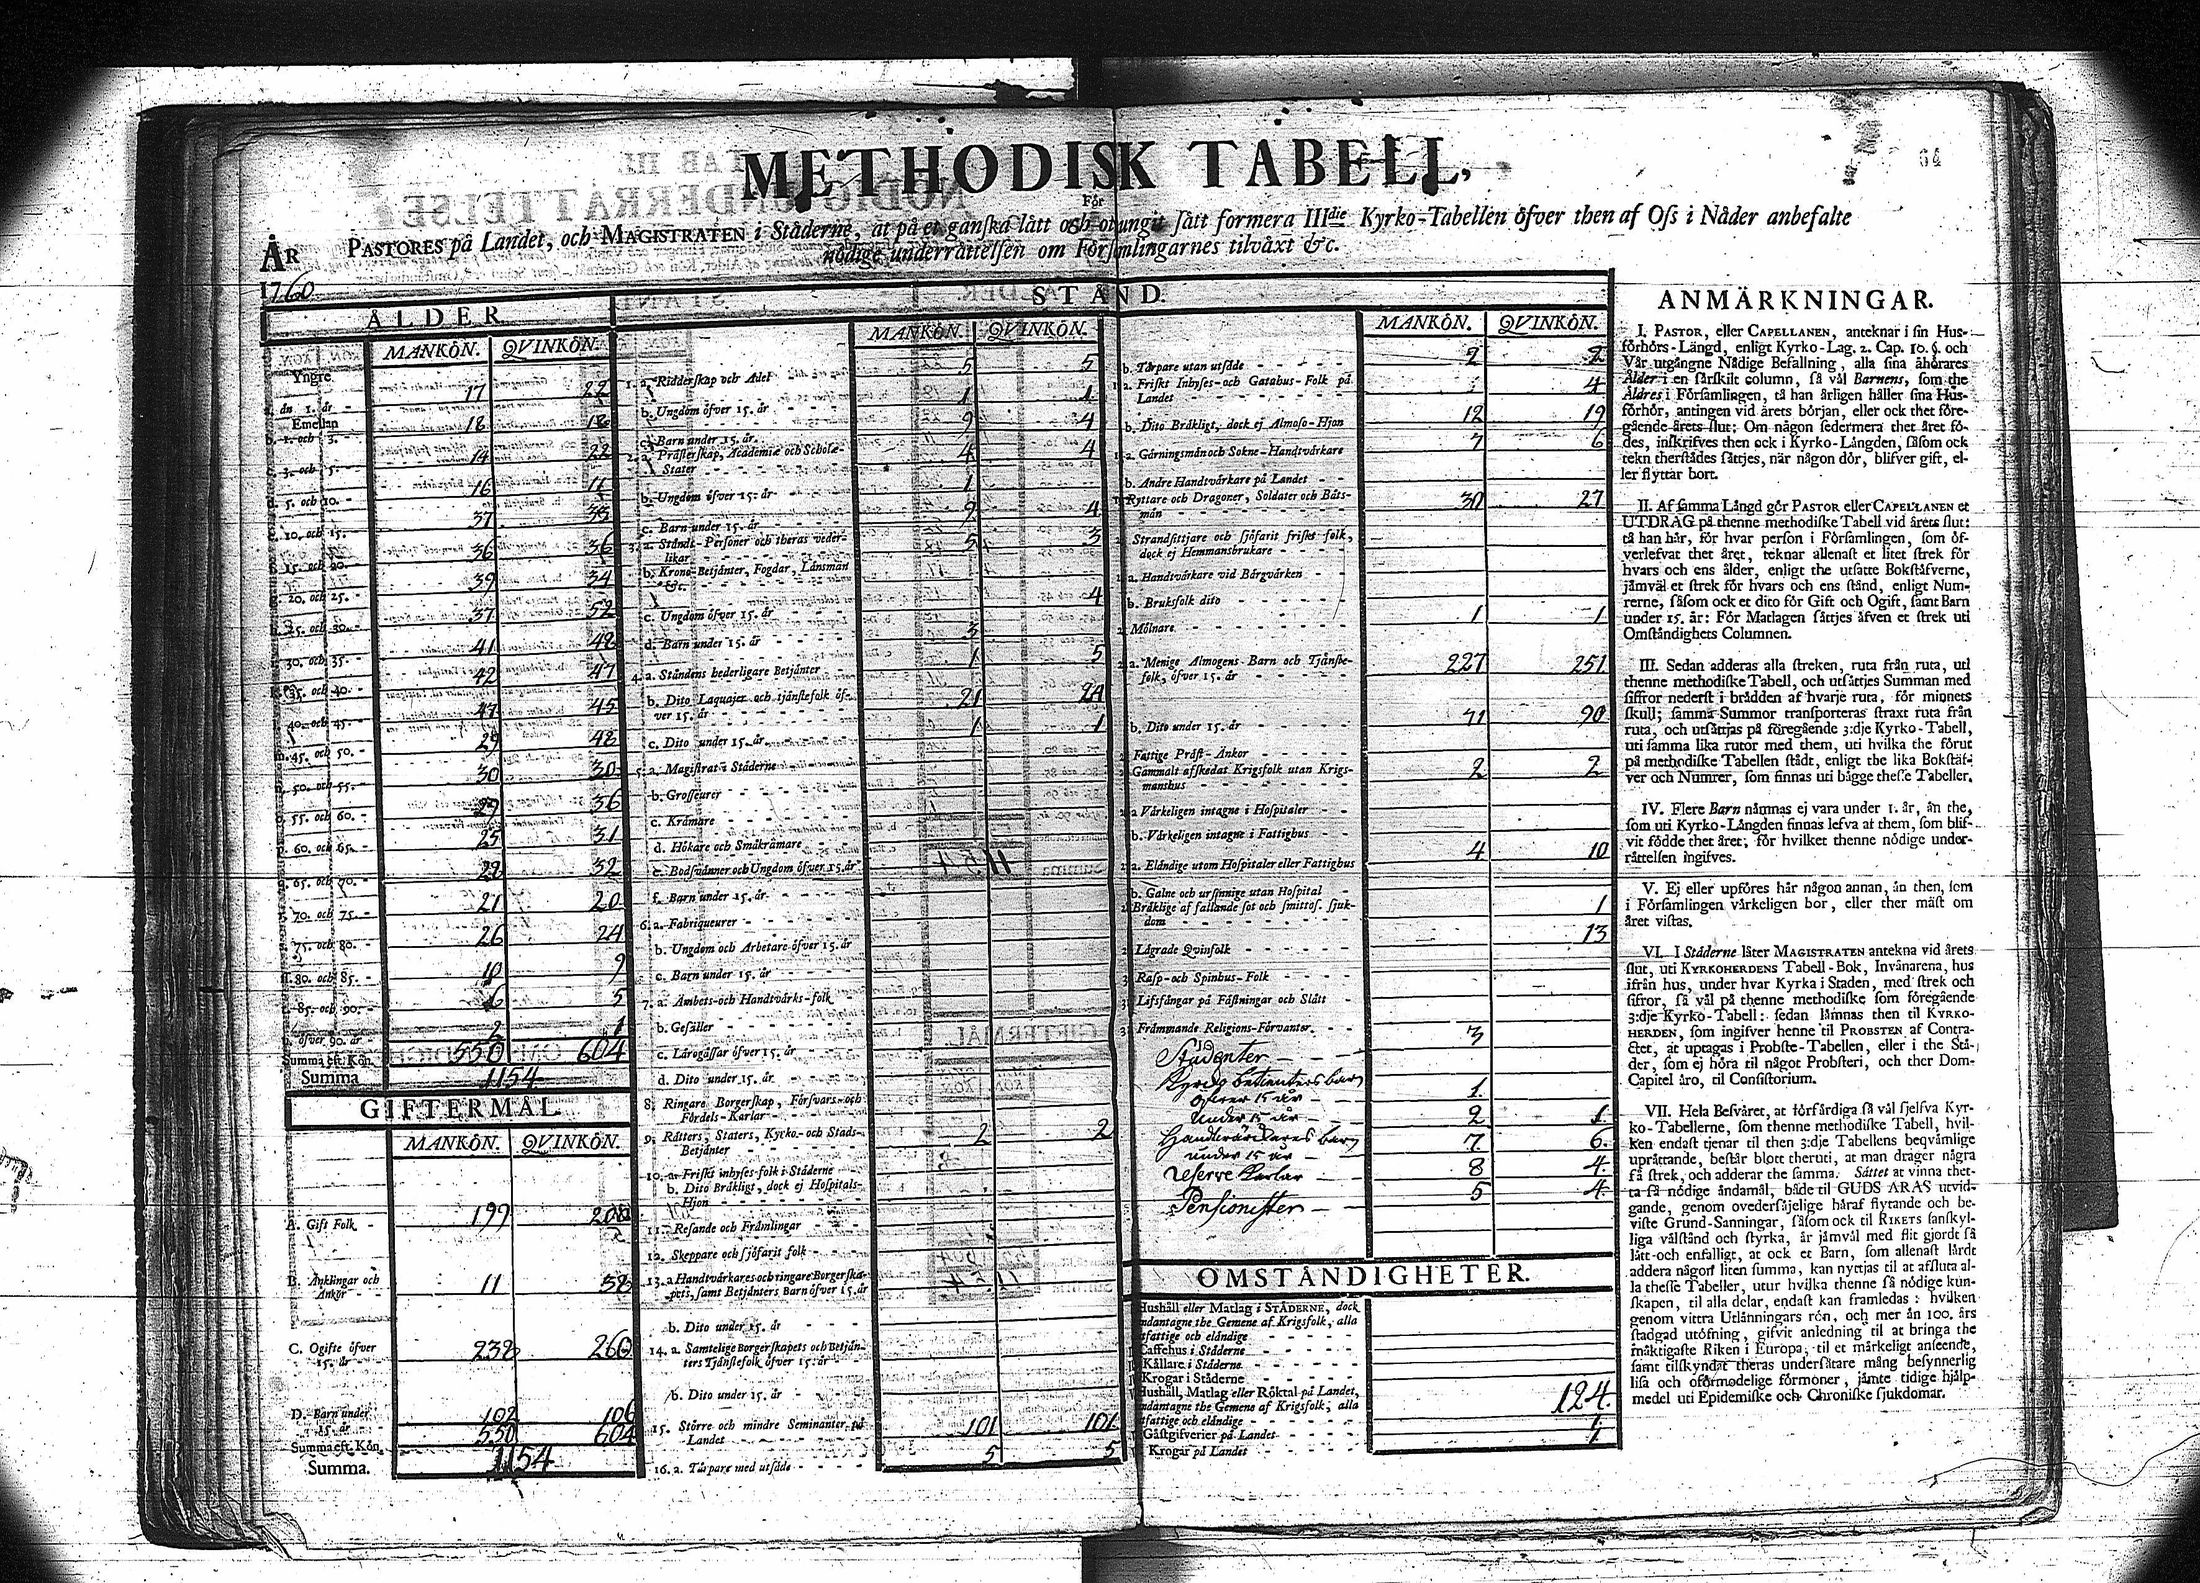 64
METHODISK TABELL,
För
PASTORES på Landet, och MAGISTRATEN i Städerne, at på et ganska lätt och otungit sätt formera IIIdie Kyrko-Tabellen öfver then af Oss i Nåder anbefalte
nödige underrättelsen om Församlingarnes tilväxt &c.
ÅR
1760.
ÅLDER
MANKÖN. QVINKÖN.
Yngre
än 1. år - 17 22
Emellan
b. 1. och 3. - 18 18
c. 3. och 5. - 14 22
d. 5. och 10. - 16 11
e. 10. och 15. 37 33
f. 15. och 20. 36 36
g. 20. och 25. - 39 34
25. och 30. - 37 52
30. och 35. 41 48
35. och 40. - 42 47
40. och 45. - 47 45
m. 45. och 50. - 29 48
50. och 55. - 30 30
o. 55. och 60. - 29 36
p. 60. och 65. 25 31
65. och 70. - 29 32
70. och 75. - 21 20
75. och 80. - 26 24
80. och 85. - 10 9
85. och 90. - 6 5
öfver 90. år - 2 1
Summa eft. Kön. 550 604
Summa 1154
GIFTERMÅL
MANKÖN. QVINKÖN.
A. Gift Folk - 199 200
B. Änklingar och
Änkor - 11 38
C. Ogifte öfver
15. år - 238 260
D. Barn under
15. år 102 106
Summa eft. Kön. 550 604
Summa. 1154
STÅND.
MANKÖN. QVINKÖN.
1. a. Ridderskap och Adel 5 5
b. Ungdom öfver 15. år 1 1
c. Barn under 15. år 9 4
2. a. Prästerskap, Academiæ och Scholæ-
Stater 4 4
b. Ungdom öfver 15. år 1
c. Barn under 15. år 9 4
3. a. Stånds-Personer och theras veder-
likar 5 3
b. Krono-Betjänter, Fogdar, Länsmän
&c.
c. Ungdom öfver 15. år 4
d. Barn under 15. år 3
4. a. Ståndens hederligare Betjänter 1 5
b. Dito Laquajer och tjänstefolk öf-
ver 15. år 21 24
c. Dito under 15. år 1 1
5. a. Magistrat i Städerne
b. Grosseurer
c. Krämare
d. Hökare och Småkrämare
e. Bodsvänner och Ungdom öfver 15. år
f. Barn under 15. år
6. a. Fabriqueurer
b. Ungdom och Arbetare öfver 15. år
c. Barn under 15. år
7. a. Ämbets- och Handtvärks-folk
b. Gesäller
c. Lärogåssar öfver 15. år
d. Dito under 15. år
8. Ringare Borgerskap, Försvars- och
Fördels-Karlar
9. Rätters, Staters, Kyrko- och Stads-
Betjänter 2 2
10. a. Friskt inhyses-folk i Städerne
b. Dito Bräkligt, dock ej Hospitals-
Hjon
11. Resande och Främlingar
12. Skeppare och sjöfarit folk
13. a. Handtvärkares och ringare Borgerska-
pets, samt Betjänters Barn öfver 15. år
b. Dito under 15. år
14. a. Samtelige Borgerskapets och Betjän-
ters Tjänstefolk öfver 15. år
b. Dito under 15. år
15. Större och mindre Seminanter på
Landet 101 101
16. a. Torpare med utsäde 5 5
MANKÖN. QVINKÖN.
b. Torpare utan utsäde 2 2
a. Friskt Inhyses- och Gatuhus-Folk på
Landet 1 4
b. Dito Bräkligt, dock ej Almoso-Hjon 12 19
a. Gärningsmän och Sokne-Handtvärkare 7 6
b. Andre Handtvärkare på Landet
Ryttare och Dragoner, Soldater och Båts-
män 30 27
Strandsittjare och sjöfarit friskt folk,
dock ej Hemmansbrukare
a. Handtvärkare vid Bärgvärken
b. Bruksfolk dito
Mölnare 1 1
a. Menige Almogens-Barn och Tjänste-
folk, öfver 15. år 227 251
b. Dito under 15. år 71 90
Fattige Präst-Änkor
Gammalt afskedat Krigsfolk utan Krigs-
manshus 2 2
a. Värkeligen intagne i Hospitaler
b. Värkeligen intagne i Fattighus
a. Eländige utom Hospitaler eller Fattighus 4 10
b. Galne och ursinnige utan Hospital
Bräklige af fallande sot och smittos. sjuk-
dom 1
Lägrade Qvinfolk 13
Rasp- och Spinhus-Folk
Lifsfångar på Fästningar och Slått
Främmande Religions-Förvanter
Studenter 3
Kyrko betienters barn
öfwer 15 år 1.
under 15 år 2 1.
Handtwärckeres barn
under 15 år 7 6.
Reserve Karlar 8 4
Pensionister 5 4.
OMSTÄNDIGHETER.
Hushåll eller Matlag i STÄDERNE, dock
undantagne the Gemene af Krigsfolk, alla
fattige och eländige
Caffehus i Städerne
Källare i Städerne
Krogar i Städerne
Hushåll, Matlag eller Röktal på Landet,
undantagne the Gemene af Krigsfolk, alla
fattige och eländige 124.
Gästgifverier på Landet 1.
Krogar på Landet
ANMÄRKNINGAR.
I. PASTOR, eller CAPELLANEN, anteknar i sin Hus-
förhörs-Längd, enligt Kyrko-Lag. 2. Cap. 10. §. och
Vår utgångne Nådige Befallning, alla sina åhörares
Ålder i en särskilt column, så väl Barnens, som the
Äldres i Församlingen, tå han årligen håller sina Hus-
förhör, antingen vid årets början, eller ock thet före-
gående årets slut: Om någon sedermera thet året fö-
des, inskrifves then ock i Kyrko-Längden, såsom ock
tekn therstädes sättjes, när någon dör, blifver gift, el-
ler flyttar bort.
II. Af samma Längd gör PASTOR eller CAPELLANEN et
UTDRAG på thenne methodiske Tabell vid årets slut:
tå han här, för hvar person i Församlingen, som öf-
verlefvat thet året, teknar allenast et litet strek för
hvars och ens ålder, enligt the utsatte Bokstäfverne,
jämväl et strek för hvars och ens stånd, enligt Num-
rerne, såsom ock et dito för Gift och Ogift, samt Barn
under 15. år: För Matlagen sättjes äfven et strek uti
Omständighets Columnen.
III. Sedan adderas alla streken, ruta från ruta, uti
thenne methodiske Tabell, och utsättjes Summan med
siffror nederst i brädden af hvarje ruta, för minnets
skull; samma Summor transporteras straxt ruta från
ruta, och utsättjas på föregående 3:dje Kyrko-Tabell,
uti samma lika rutor med them, uti hvilka the förut
på methodiske Tabellen stådt, enligt the lika Bokstäf-
ver och Numrer, som finnas uti bägge thesse Tabeller.
IV. Flere Barn nämnas ej vara under 1. år, än the,
som uti Kyrko-Längden finnas lefva at them, som blif-
vit födde thet året; för hvilket thenne nödige under-
rättelsen ingifves.
V. Ej eller upföres här någon annan, än then, som
i Församlingen värkeligen bor, eller ther mäst om
året vistas.
VI. I Städerne låter MAGISTRATEN antekna vid årets
slut, uti KYRKOHERDENS Tabell-Bok, Invånarena, hus
ifrån hus, under hvar Kyrka i Staden, med strek och
siffror, så väl på thenne methodiske som föregående
3:dje Kyrko-Tabell: sedan lämnas then til KYRKO-
HERDEN, som ingifver henne til PROBSTEN af Contra-
ctet, at uptagas i Probste-Tabellen, eller i the Stä-
der, som ej höra til något Probsteri, och ther Dom-
Capitel äro, til Consistorium.
VII. Hela Besväret, at förfärdiga så väl sjelfva Kyr-
ko-Tabellerne, som thenne methodiske Tabell, hvil-
ken endast tjenar til then 3:dje Tabellens beqvämlige
uprättande, består blott theruti, at man drager några
få strek, och adderar the samma. Sättet at vinna thet-
ta så nödige ändamål, både til GUDS ÄRAS utvid-
gande, genom ovedersäjelige häraf flytande och be-
viste Grund-Sanningar, såsom ock til RIKETS sanskyl-
liga välstånd och styrka, är jämväl med flit gjordt så
lätt och enfalligt, at ock et Barn, som allenast lärdt
addera någon liten summa, kan nyttjas til at afsluta al-
la thesse Tabeller, utur hvilka thenne så nödige kun-
skapen, til alla delar, endast kan framledas: hvilken
genom vittra Utlänningars rön, och mer än 100. års
stadgad utöfning, gifvit anledning til at bringa the
mäktigaste Riken i Europa, til et märkeligt anseende,
samt tilskyndat theras undersåtare mång besynnerlig
lisa och oförmodelige förmoner, jämte tidige hjälp-
medel uti Epidemiske och Chroniske sjukdomar.